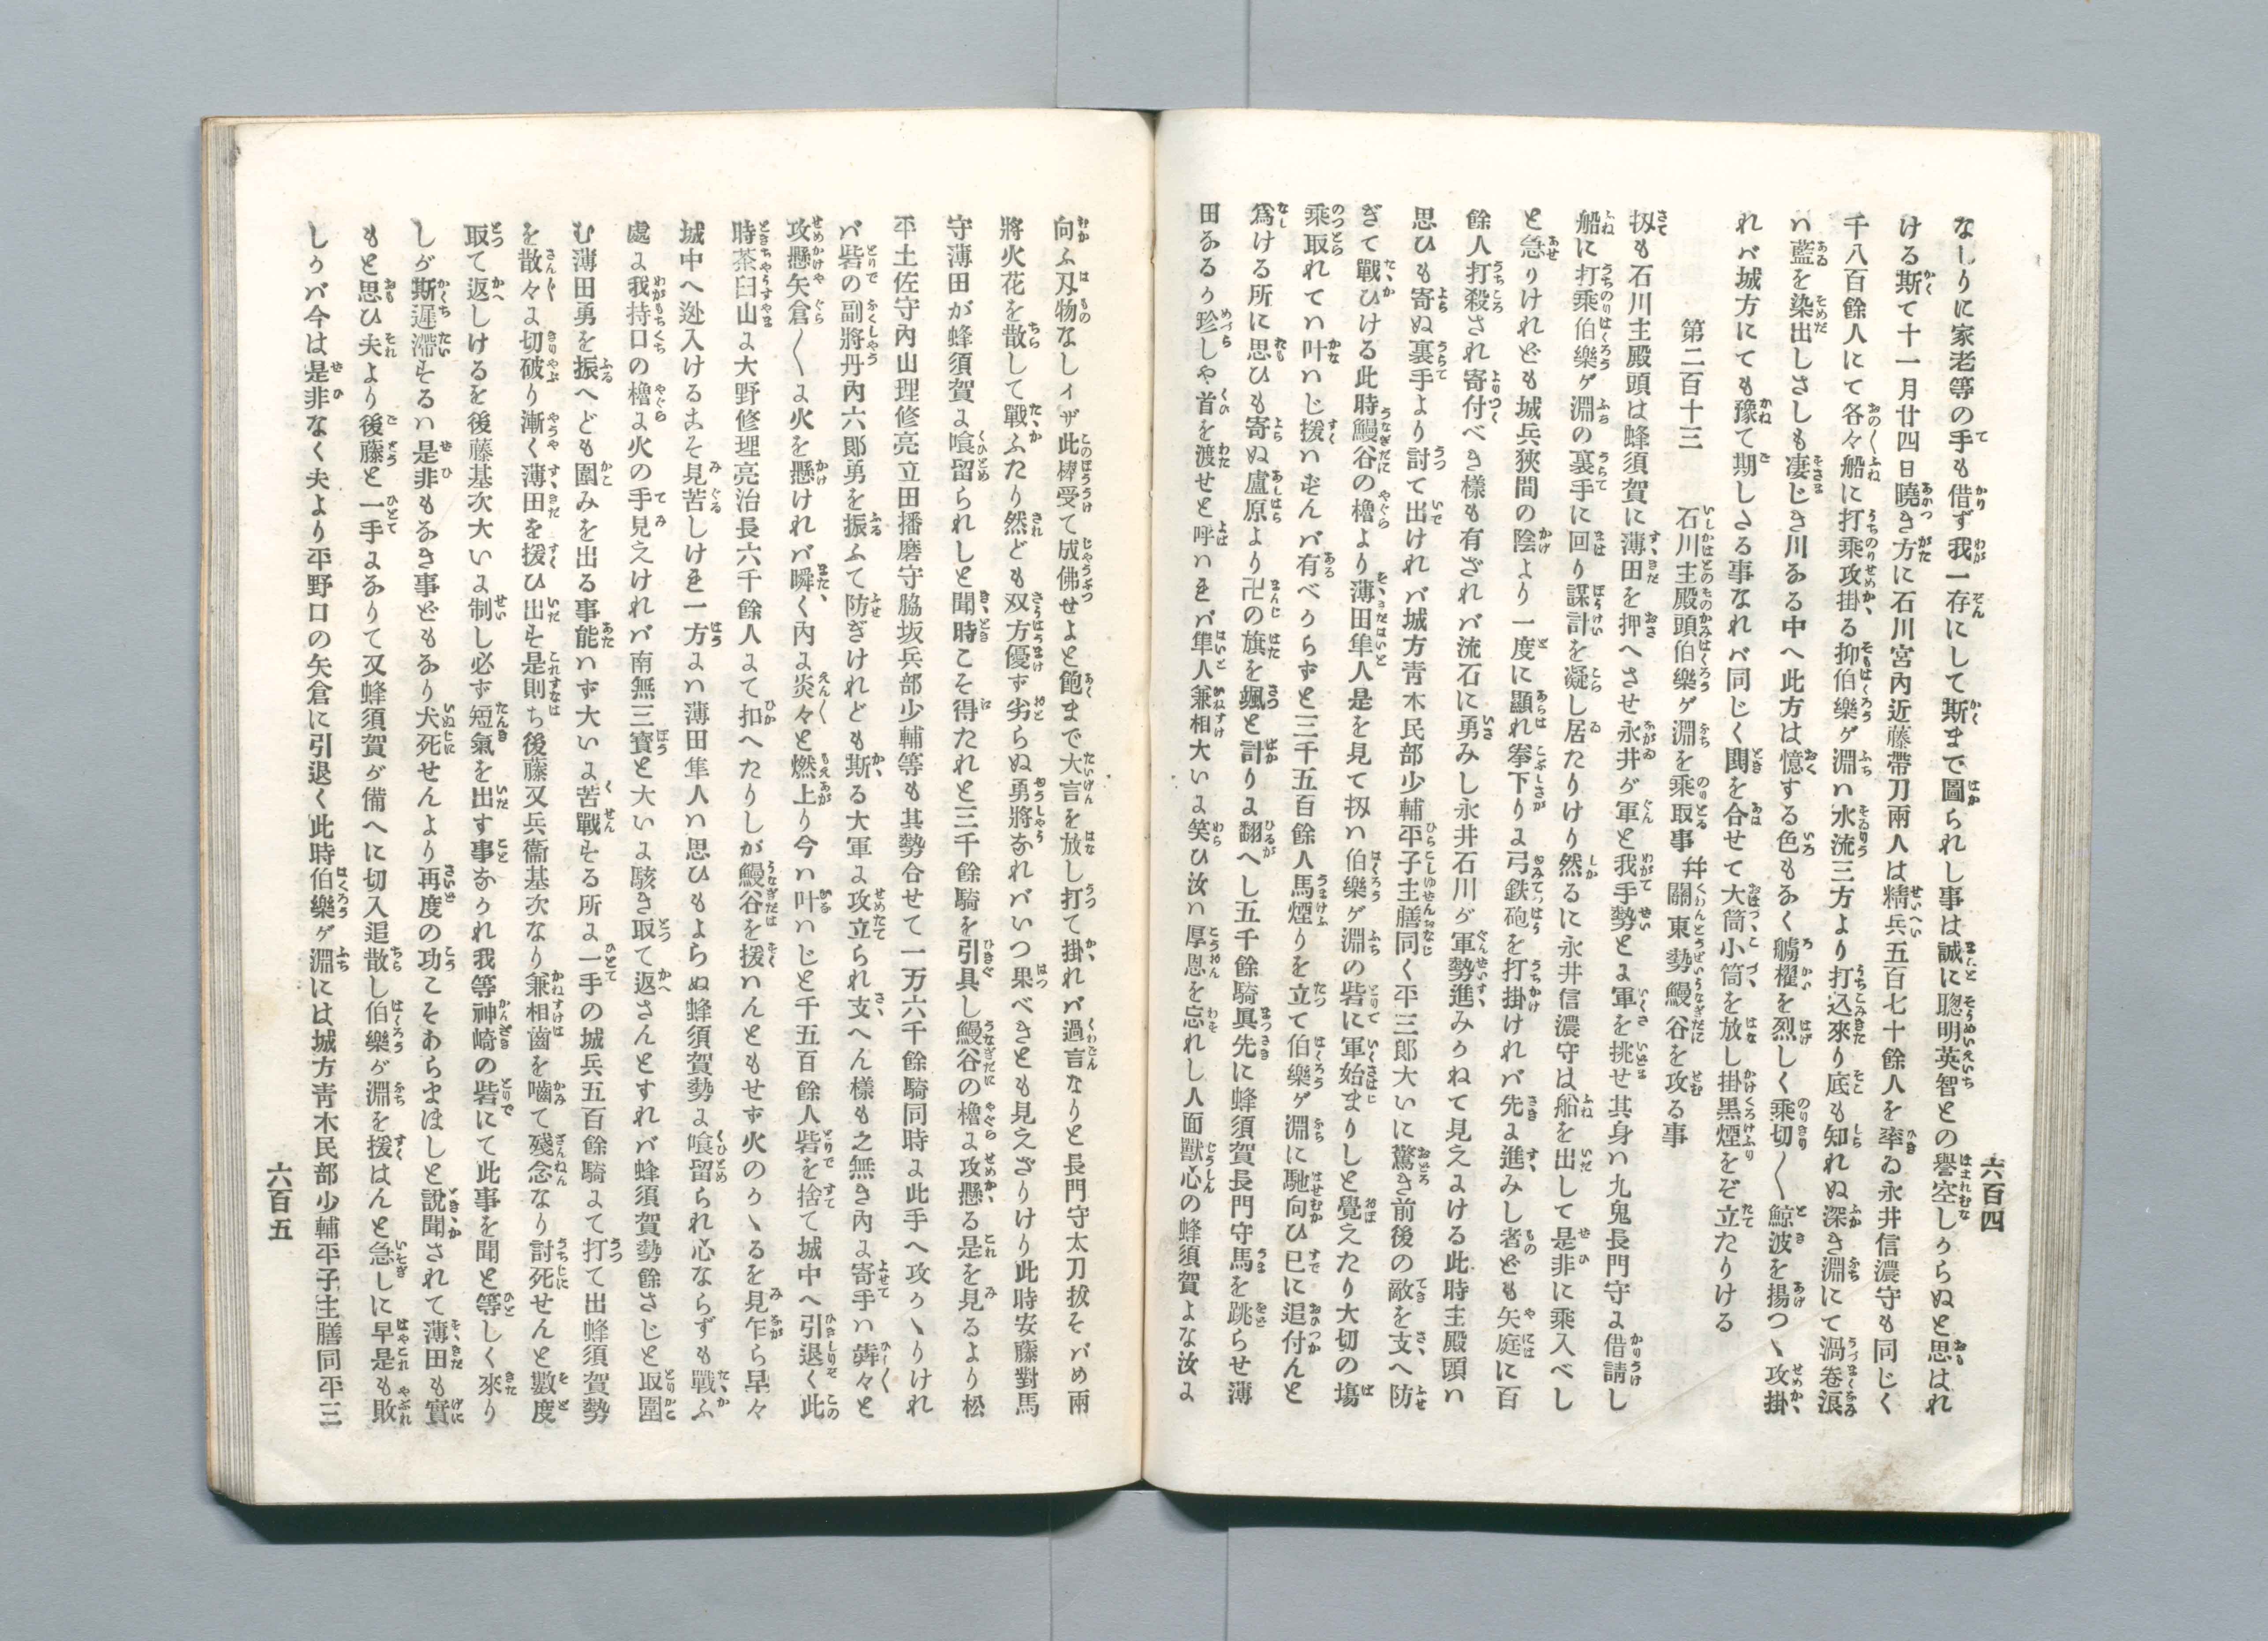 六百四
なしりに家老等の手も借ず我一存にして斯まで圖られし事は誠に聰明英智との譽空しからぬと思はれ
ける斯て十一月廿四日曉き方に石川宮內近藤帶刀兩人は精兵五百七十餘人を率ゐ永井信濃守も同じく
千八百餘人にて各々船に打乘攻掛る抑伯樂ゲ淵ハ水流三方より打込來り底も知れぬ深き淵にて渦卷浪
ハ藍を染出しさしも凄じき川なる中へ此方は憶する色もなく艣櫂を烈しく乘切〱鯨波を揚つゝ攻掛
れバ城方にても豫て期しさる事なれバ同じく鬨を合せて大筒小筒を放し掛黑煙をぞ立たりける
第二百十三　石川主殿頭伯樂ゲ淵を乘取事　幷關東勢鰻谷を攻る事
扨も石川主殿頭は蜂須賀に薄田を押へさせ永井が軍と我手勢とに軍を挑せ其身ハ九鬼長門守に借請し
船に打乘伯樂ゲ淵の裏手に回り謀計を凝し居たりけり然るに永井信濃守は船を出して是非に乘入べし
と急りけれども城兵狹間の陰より一度に顯れ拳下りに弓鉄砲を打掛けれバ先に進みし者ども矢庭に百
餘人打殺され寄付べき樣も有ざれバ流石に勇みし永井石川が軍勢進みかねて見えにける此時主殿頭ハ
思ひも寄ぬ裏手より討て出けれバ城方靑木民部少輔平子主膳同く平三郎大いに驚き前後の敵を支へ防
ぎて戰ひける此時鰻谷の櫓より薄田隼人是を見て扨ハ伯樂ゲ淵の砦に軍始まりしと覺えたり大切の塲
乘取れてハ叶ハじ援ハずんバ有べからずと三千五百餘人馬煙りを立て伯樂ゲ淵に馳向ひ已に追付んと
爲ける所に思ひも寄ぬ盧原より卍の旗を颯と計りに翻へし五千餘騎眞先に蜂須賀長門守馬を跳らせ薄
田なるか珍しや首を渡せと呼ハれバ隼人兼相大いに笑ひ汝ハ厚恩を忘れし人面獸心の蜂須賀よな汝に
向ふ刄物なしィザ此棒受て成佛せよと飽まで大言を放し打て掛れバ過言なりと長門守太刀拔そバめ兩
將火花を散して戰ふたり然ども双方優ず劣らぬ勇將なれバいつ果べきとも見えざりけり此時安藤對馬
守薄田が蜂須賀に喰留られしと聞時こそ得たれと三千餘騎を引具し鰻谷の櫓に攻懸る是を見るより松
平土佐守內山理修亮立田播磨守脇坂兵部少輔等も其勢合せて一万六千餘騎同時に此手へ攻かゝりけれ
バ砦の副將丹內六郞勇を振ふて防ぎけれども斯る大軍に攻立られ支へん樣も之無き內に寄手ハ犇々と
攻懸矢倉〱に火を懸けれバ瞬く內に炎々と燃上り今ハ叶ハじと千五百餘人砦を捨て城中へ引退く此
時茶臼山に大野修理亮治長六千餘人にて扣へたりしが鰻谷を援ハんともせず火のかゝるを見乍ら早々
城中へ迯入けるこそ見苦しけれ一方にハ薄田隼人ハ思ひもよらぬ蜂須賀勢に喰留られ心ならずも戰ふ
處に我持口の櫓に火の手見えけれバ南無三寶と大いに駭き取て返さんとすれバ蜂須賀勢餘さじと取圍
む薄田勇を振へども圍みを出る事能ハず大いに苦戰する所に一手の城兵五百餘騎にて打て出蜂須賀勢
を散々に切破り漸く薄田を援ひ出す是則ち後藤又兵衞基次なり兼相齒を嚙て殘念なり討死せんと數度
取て返しけるを後藤基次大いに制し必ず短氣を出す事なかれ我等神崎の砦にて此事を聞と等しく來り
しが斯遲滯するハ是非もなき事どもなり犬死せんより再度の功こそあらまほしと說聞されて薄田も實
もと思ひ夫より後藤と一手になりて又蜂須賀が備へに切入追散し伯樂が淵を援はんと急しに早是も敗
しかバ今は是非なく夫より平野口の矢倉に引退く此時伯樂ゲ淵には城方靑木民部少輔平子主膳同平三
六百五